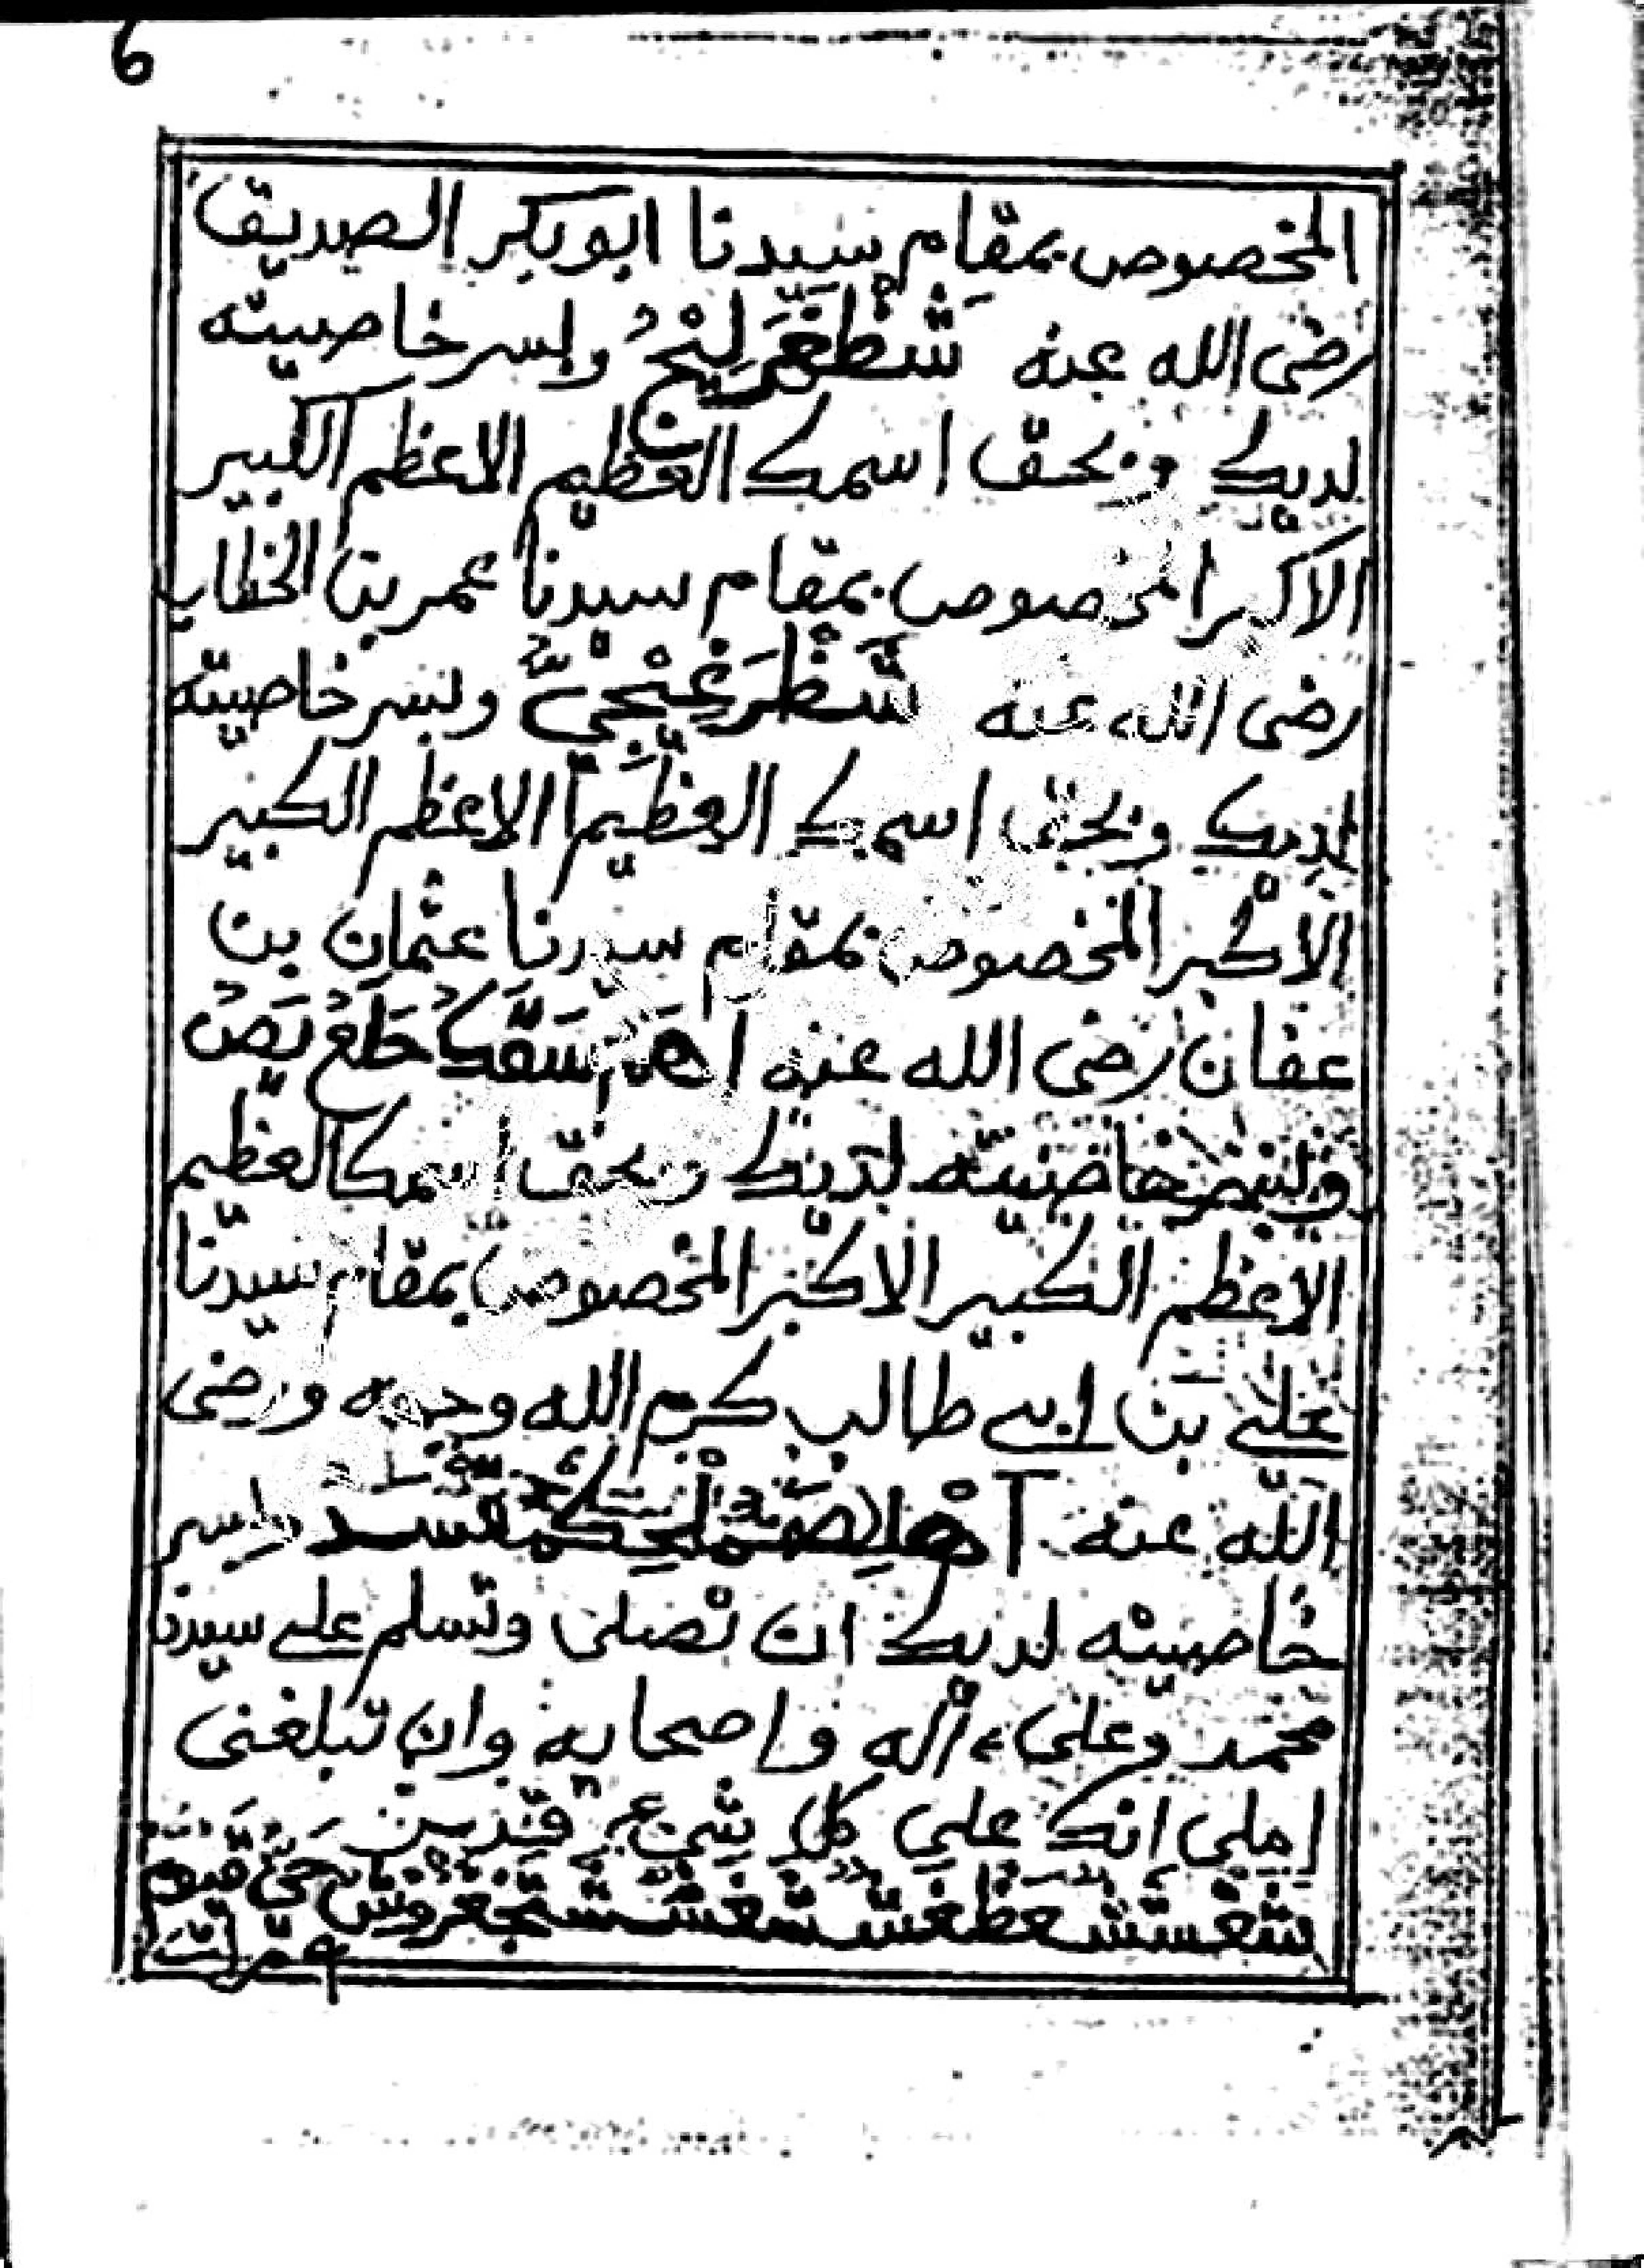 6
المخصوص بمقام سيدنا ابوبكر الصديق
رضى الله عنه ولسر خاصيته
لديك وبحق اسمك العظيم الاعظم الكبير
الاكبر المخصوص بمقام سيدنا عمر بن الخطاب
رضى الله عنه ولسر خاصيته
لديك وبحق اسمك العظيم الاعظم الكبير
الاكبر المخصوص بمقام سيدنا عثمان بن
عفان رضى الله عنه
ولسر خاصيته لديك وبحق اسمك العظيم
الاعظم الكبير الاكبر المخصوص بمقام سيدنا
على بن ابى طالب كرم الله وجهه ورضى
الله عنه ولسر
خاصيته لديك ان تصلى وتسلم على سيدنا
محمد وعلى ءاله واصحابه وان تبلغنى
املى انك على كل شىء قدير
حى قيوم